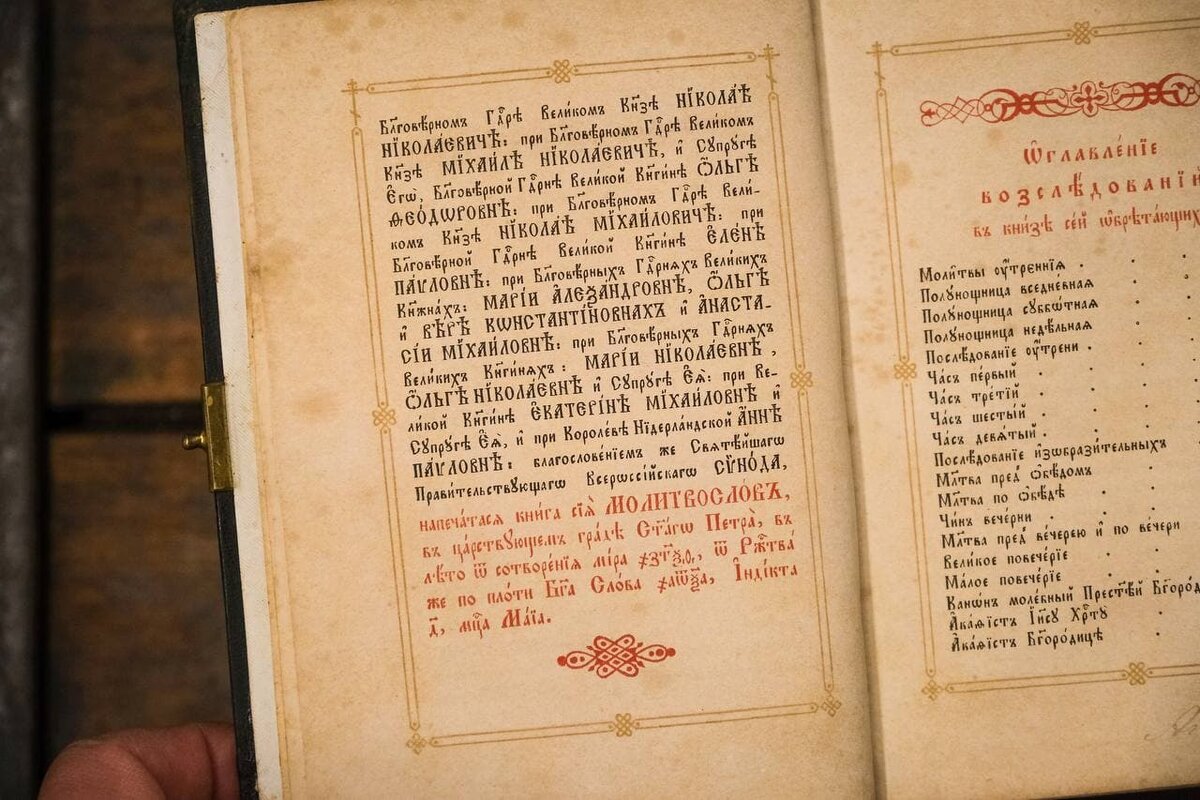 Бл҃говѣ́рномъ Гдⷭ҇рѣ Вели́комъ Кн҃зѣ НІКОЛА́Ѣ
НІКОЛА́ЕВИЧѢ: при Бл҃говѣ́рномъ Гдⷭ҇рѣ Вели́комъ
Кн҃зѣ МІХАИ́ЛѢ НІКОЛА́ЕВИЧѢ, и҆ Сꙋпрꙋ́гѣ
Є҆гѡ̀, Бл҃говѣ́рной Гдⷭ҇рнѣ Вели́кой Кн҃ги́нѣ Ѻ҆́ЛЬГѢ
ѲЕѠ́ДѠРОВНѢ: при Бл҃говѣ́рномъ Гдⷭ҇рѣ Вели-
комъ Кн҃зѣ НІКОЛА́Ѣ МІХАИ́ЛОВИЧѢ: при
Бл҃говѣ́рной Гдⷭ҇рнѣ Вели́кой Кн҃ги́нѣ Є҆ЛЕ́НѢ
ПА́ѴЛОВНѢ: при Бл҃говѣ́рныхъ Гдⷭ҇рняхъ Вели́кихъ
Кн҃жна́хъ: МАРІ́И А҆ЛЕѮА́НДРОВНѢ, Ѻ҆́ЛЬГѢ
и҆ ВѢ́РѢ КѠНСТАНТІ́НОВНАХЪ и҆ А҆НАСТА-
СІ́И МІХАИ́ЛОВНѢ: при Бл҃говѣ́рныхъ Гдⷭ҇рняхъ
Вели́кихъ Кн҃ги́няхъ: МАРІ́И НІКОЛА́ЕВНѢ,
Ѻ҆́ЛЬГѢ НІКОЛА́ЕВНѢ и҆ Сꙋпрꙋ́гѣ Є҆Ѧ̀: при Ве-
ли́кой Кн҃ги́нѣ Є҆КАТЕРІ́НѢ МІХАИ́ЛОВНѢ и҆
Сꙋпрꙋ́гѣ Є҆Ѧ̀, и҆ при Короле́вѣ Нїдерла́ндской А҆́ННѢ
ПА́ѴЛОВНѢ: благослове́нїемъ же Свѧтѣ́йшагѡ
Прави́тельствꙋющагѡ Всерѡссі́йскагѡ СѴНО́ДА,
напеча́тасѧ кни́га сїѧ̀ МОЛИТВОСЛО́ВЪ,
въ ца́рствꙋющемъ гра́дѣ Ст҃а́гѡ Петра̀, въ
лѣ́то ѿ сотворе́нїѧ мі́ра ҂зтѯѳ, ѿ Ржⷭ҇тва́
же по пло́ти Бг҃а Сло́ва ҂аѿѯа, І҆ндікта
д҃, мцⷭ҇а Ма́їа.
Ѡ҆главле́нїе
возслѣ́дованїй
въ кни́зѣ се́й ѡ҆брѣта́ющих
Моли́твы оу҆́треннїѧ
Полꙋ́нощница вседне́внаѧ
Полꙋ́нощница сꙋббѡ́тнаѧ
Полꙋ́нощница недѣ́льнаѧ
Послѣ́дованїе оу҆́трени
Ча́съ пе́рвый
Ча́съ тре́тїй
Ча́съ шесты́й
Ча́съ девѧ́тый
Послѣ́дованїе и҆зѡбрази́тельныхъ
Мл҃тва пред̾ ѻ҆бѣ́домъ
Мл҃тва по ѻ҆бѣ́дѣ
Чи́нъ вече́рни
Мл҃тва пред̾ ве́черею и҆ по ве́чери
Вели́кое повече́рїе
Ма́лое повече́рїе
Канѡ́нъ моле́бный Прест҃ѣ́й Бг҃оро́д
А҆ка́ѳїстъ І҆и҃сꙋ Хрⷭ҇тꙋ̀
А҆ка́ѳїстъ Бг҃оро́дицѣ